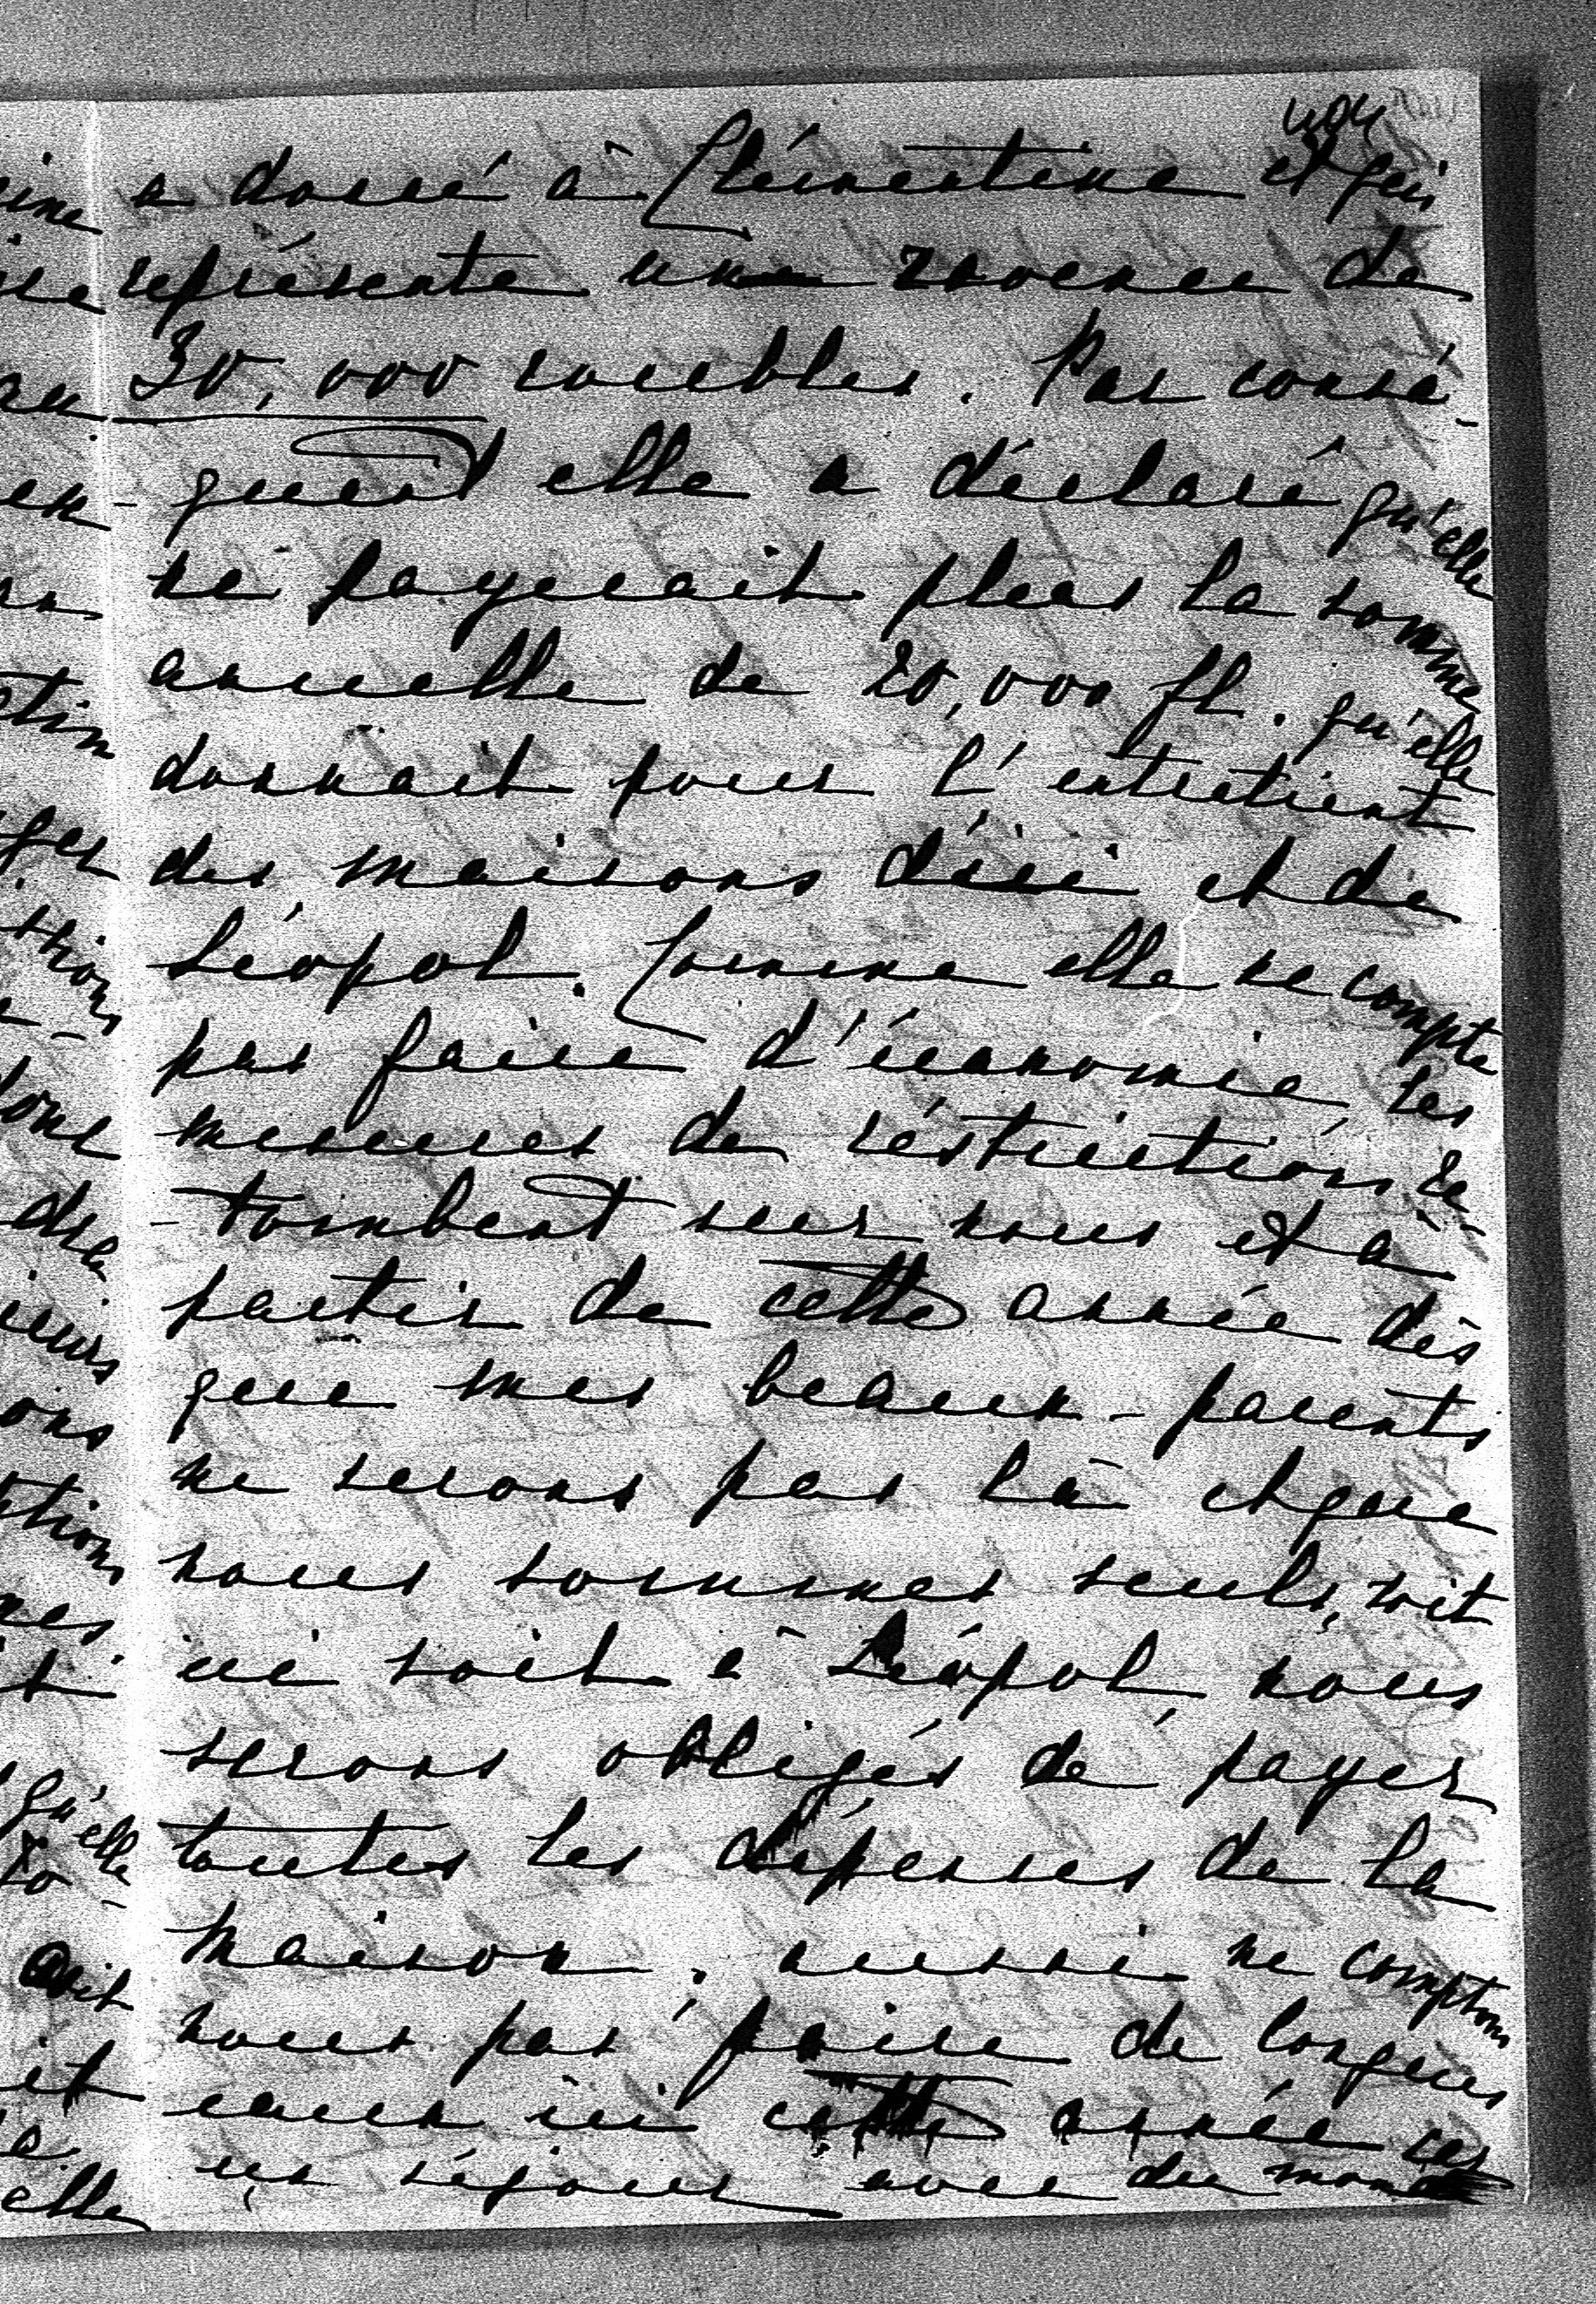 404
a donné à Clémentine et qui
représente une revenue de
30,000 roubles. Par consé-
-quent elle a déclaré qu'elle
ne payerait plus la somme
annuelle de 20,000 fl. qu'elle
donnait pour l'entretient
des maisons d'ici et de
Léopol. Comme elle ne compte
pas faire d'économie, les
mesures de réstrictions re-
-tombent sur nous et à
partir de cette année dès
que mes beaux-parents
ne serons pas là et que
nous sommes seuls, soit
ici soit à Léopol, nous
serons obligés de payer
toutes les dépenses de la
maison. aussi ne comptons
nous pas faire de longues
ici cette année car
un séjour avec du monde